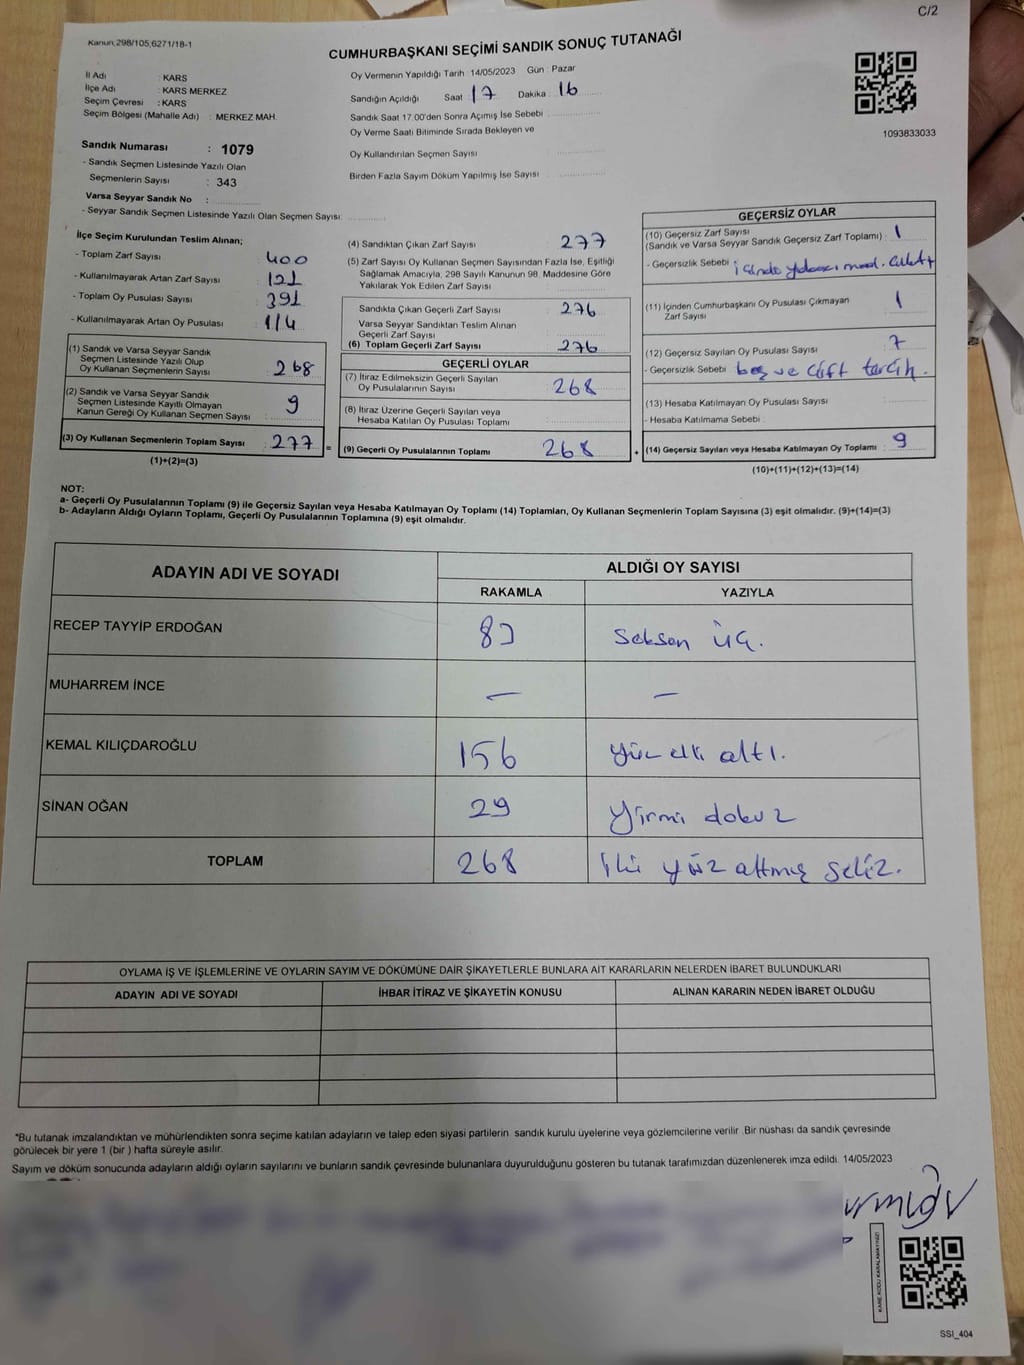 C/2
Kanun;298/105;6271/18-1
CUMHURBAŞKANI SEÇİMİ SANDIK SONUÇ TUTANAĞI
İl Adı : KARS
İlçe Adı : KARS MERKEZ
Seçim Çevresi : KARS
Seçim Bölgesi (Mahalle Adı) : MERKEZ MAH.
Oy Vermenin Yapıldığı Tarih :14/05/2023 Gün : Pazar
Sandığın Açıldığı Saat 17 Dakika : 16
Sandık Saat 17.00'den Sonra Açımış İse Sebebi :
Oy Verme Saati Bitiminde Sırada Bekleyen ve
Oy Kullandırılan Seçmen Sayısı :
Birden Fazla Sayım Döküm Yapılmış İse Sayısı :
1093833033
Sandık Numarası : 1079
- Sandık Seçmen Listesinde Yazılı Olan
Seçmenlerin Sayısı : 343
Varsa Seyyar Sandık No :
- Seyyar Sandık Seçmen Listesinde Yazılı Olan Seçmen Sayısı:
İlçe Seçim Kurulundan Teslim Alınan;
- Toplam Zarf Sayısı : 400
- Kullanılmayarak Artan Zarf Sayısı : 121
- Toplam Oy Pusulası Sayısı : 391
- Kullanılmayarak Artan Oy Pusulası : 114
(1) Sandık ve Varsa Seyyar Sandık
Seçmen Listesinde Yazılı Olup
Oy Kullanan Seçmenlerin Sayısı : 268
(2) Sandık ve Varsa Seyyar Sandık
Seçmen Listesinde Kayıtlı Olmayan
Kanun Gereği Oy Kullanan Seçmen Sayısı : 9
(3) Oy Kullanan Seçmenlerin Toplam Sayısı : 277 =
(1)+(2)=(3)
(4) Sandıktan Çıkan Zarf Sayısı : 277
(5) Zarf Sayısı Oy Kullanan Seçmen Sayısından Fazla İse, Eşitliği
Sağlamak Amacıyla, 298 Sayılı Kanunun 98. Maddesine Göre
Yakılarak Yok Edilen Zarf Sayısı :
Sandıkta Çıkan Geçerli Zarf Sayısı : 276
Varsa Seyyar Sandıktan Teslim Alınan
Geçerli Zarf Sayısı :
(6) Toplam Geçerli Zarf Sayısı : 276
GEÇERLİ OYLAR
(7) İtiraz Edilmeksizin Geçerli Sayılan
Oy Pusulalarının Sayısı : 268
(8) İtiraz Üzerine Geçerli Sayılan veya
Hesaba Katılan Oy Pusulası Toplamı :
(9) Geçerli Oy Pusulalarının Toplamı : 268 +
GEÇERSİZ OYLAR
(10) Geçersiz Zarf Sayısı
(Sandık ve Varsa Seyyar Sandık Geçersiz Zarf Toplamı) : 1
- Geçersizlik Sebebi : içinde yabancı mad.
(11) İçinden Cumhurbaşkanı Oy Pusulası Çıkmayan
Zarf Sayısı : 1
(12) Geçersiz Sayılan Oy Pusulası Sayısı : 7
- Geçersizlik Sebebi : boş ve çift tercih.
(13) Hesaba Katılmayan Oy Pusulası Sayısı :
- Hesaba Katılmama Sebebi :
(14) Geçersiz Sayılan veya Hesaba Katılmayan Oy Toplamı : 9
(10)+(11)+(12)+(13)=(14)
NOT:
a- Geçerli Oy Pusulalarının Toplamı (9) ile Geçersiz Sayılan veya Hesaba Katılmayan Oy Toplamı (14) Toplamları, Oy Kullanan Seçmenlerin Toplam Sayısına (3) eşit olmalıdır. (9)+(14)=(3)
b- Adayların Aldığı Oyların Toplamı, Geçerli Oy Pusulalarının Toplamına (9) eşit olmalıdır.
ADAYIN ADI VE SOYADI ALDIĞI OY SAYISI
RAKAMLA YAZIYLA
RECEP TAYYİP ERDOĞAN 83 Seksen üç.
MUHARREM İNCE - -
KEMAL KILIÇDAROĞLU 156 Yüz elli altı.
SİNAN OĞAN 29 Yirmi dokuz
TOPLAM 268 İki yüz altmış sekiz.
OYLAMA İŞ VE İŞLEMLERİNE VE OYLARIN SAYIM VE DÖKÜMÜNE DAİR ŞİKAYETLERLE BUNLARA AİT KARARLARIN NELERDEN İBARET BULUNDUKLARI
ADAYIN ADI VE SOYADI İHBAR İTİRAZ VE ŞİKAYETİN KONUSU ALINAN KARARIN NEDEN İBARET OLDUĞU
*Bu tutanak imzalandıktan ve mühürlendikten sonra seçime katılan adayların ve talep eden siyasi partilerin sandık kurulu üyelerine veya gözlemcilerine verilir. Bir nüshası da sandık çevresinde
görülecek bir yere 1 (bir ) hafta süreyle asılır.
Sayım ve döküm sonucunda adayların aldığı oyların sayılarını ve bunların sandık çevresinde bulunanlara duyurulduğunu gösteren bu tutanak tarafımızdan düzenlenerek imza edildi. 14/05/2023
KARE KODU KARALAMAYINIZ!
SSI_404